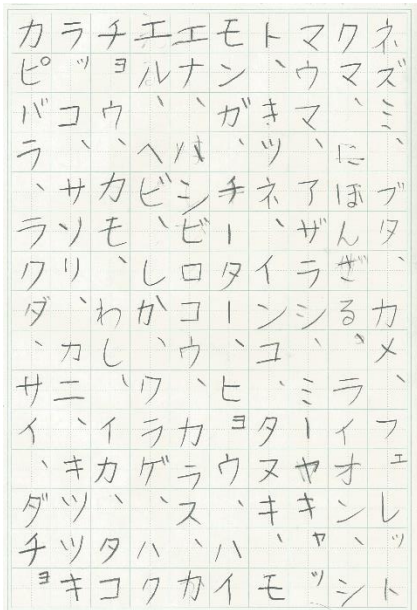 ネズミ、ブタ、カメ、フェレット
クマ、にほんざる、ライオン、シ
マウマ、アザラシ、ミーヤキャッ
ト、きツネ、インコ、タヌキ、モ
モンが、チーター、ヒョウ、ハイ
エナ、ハシビロコウ、カラス、カ
エル、ヘビ、しか、ワラゲ、ハク
チョウ、カモ、わし、イカ、タコ
ラッコ、サソリ、カニ、キツツキ
カピバラ、ラクダ、サイ、ダチョ